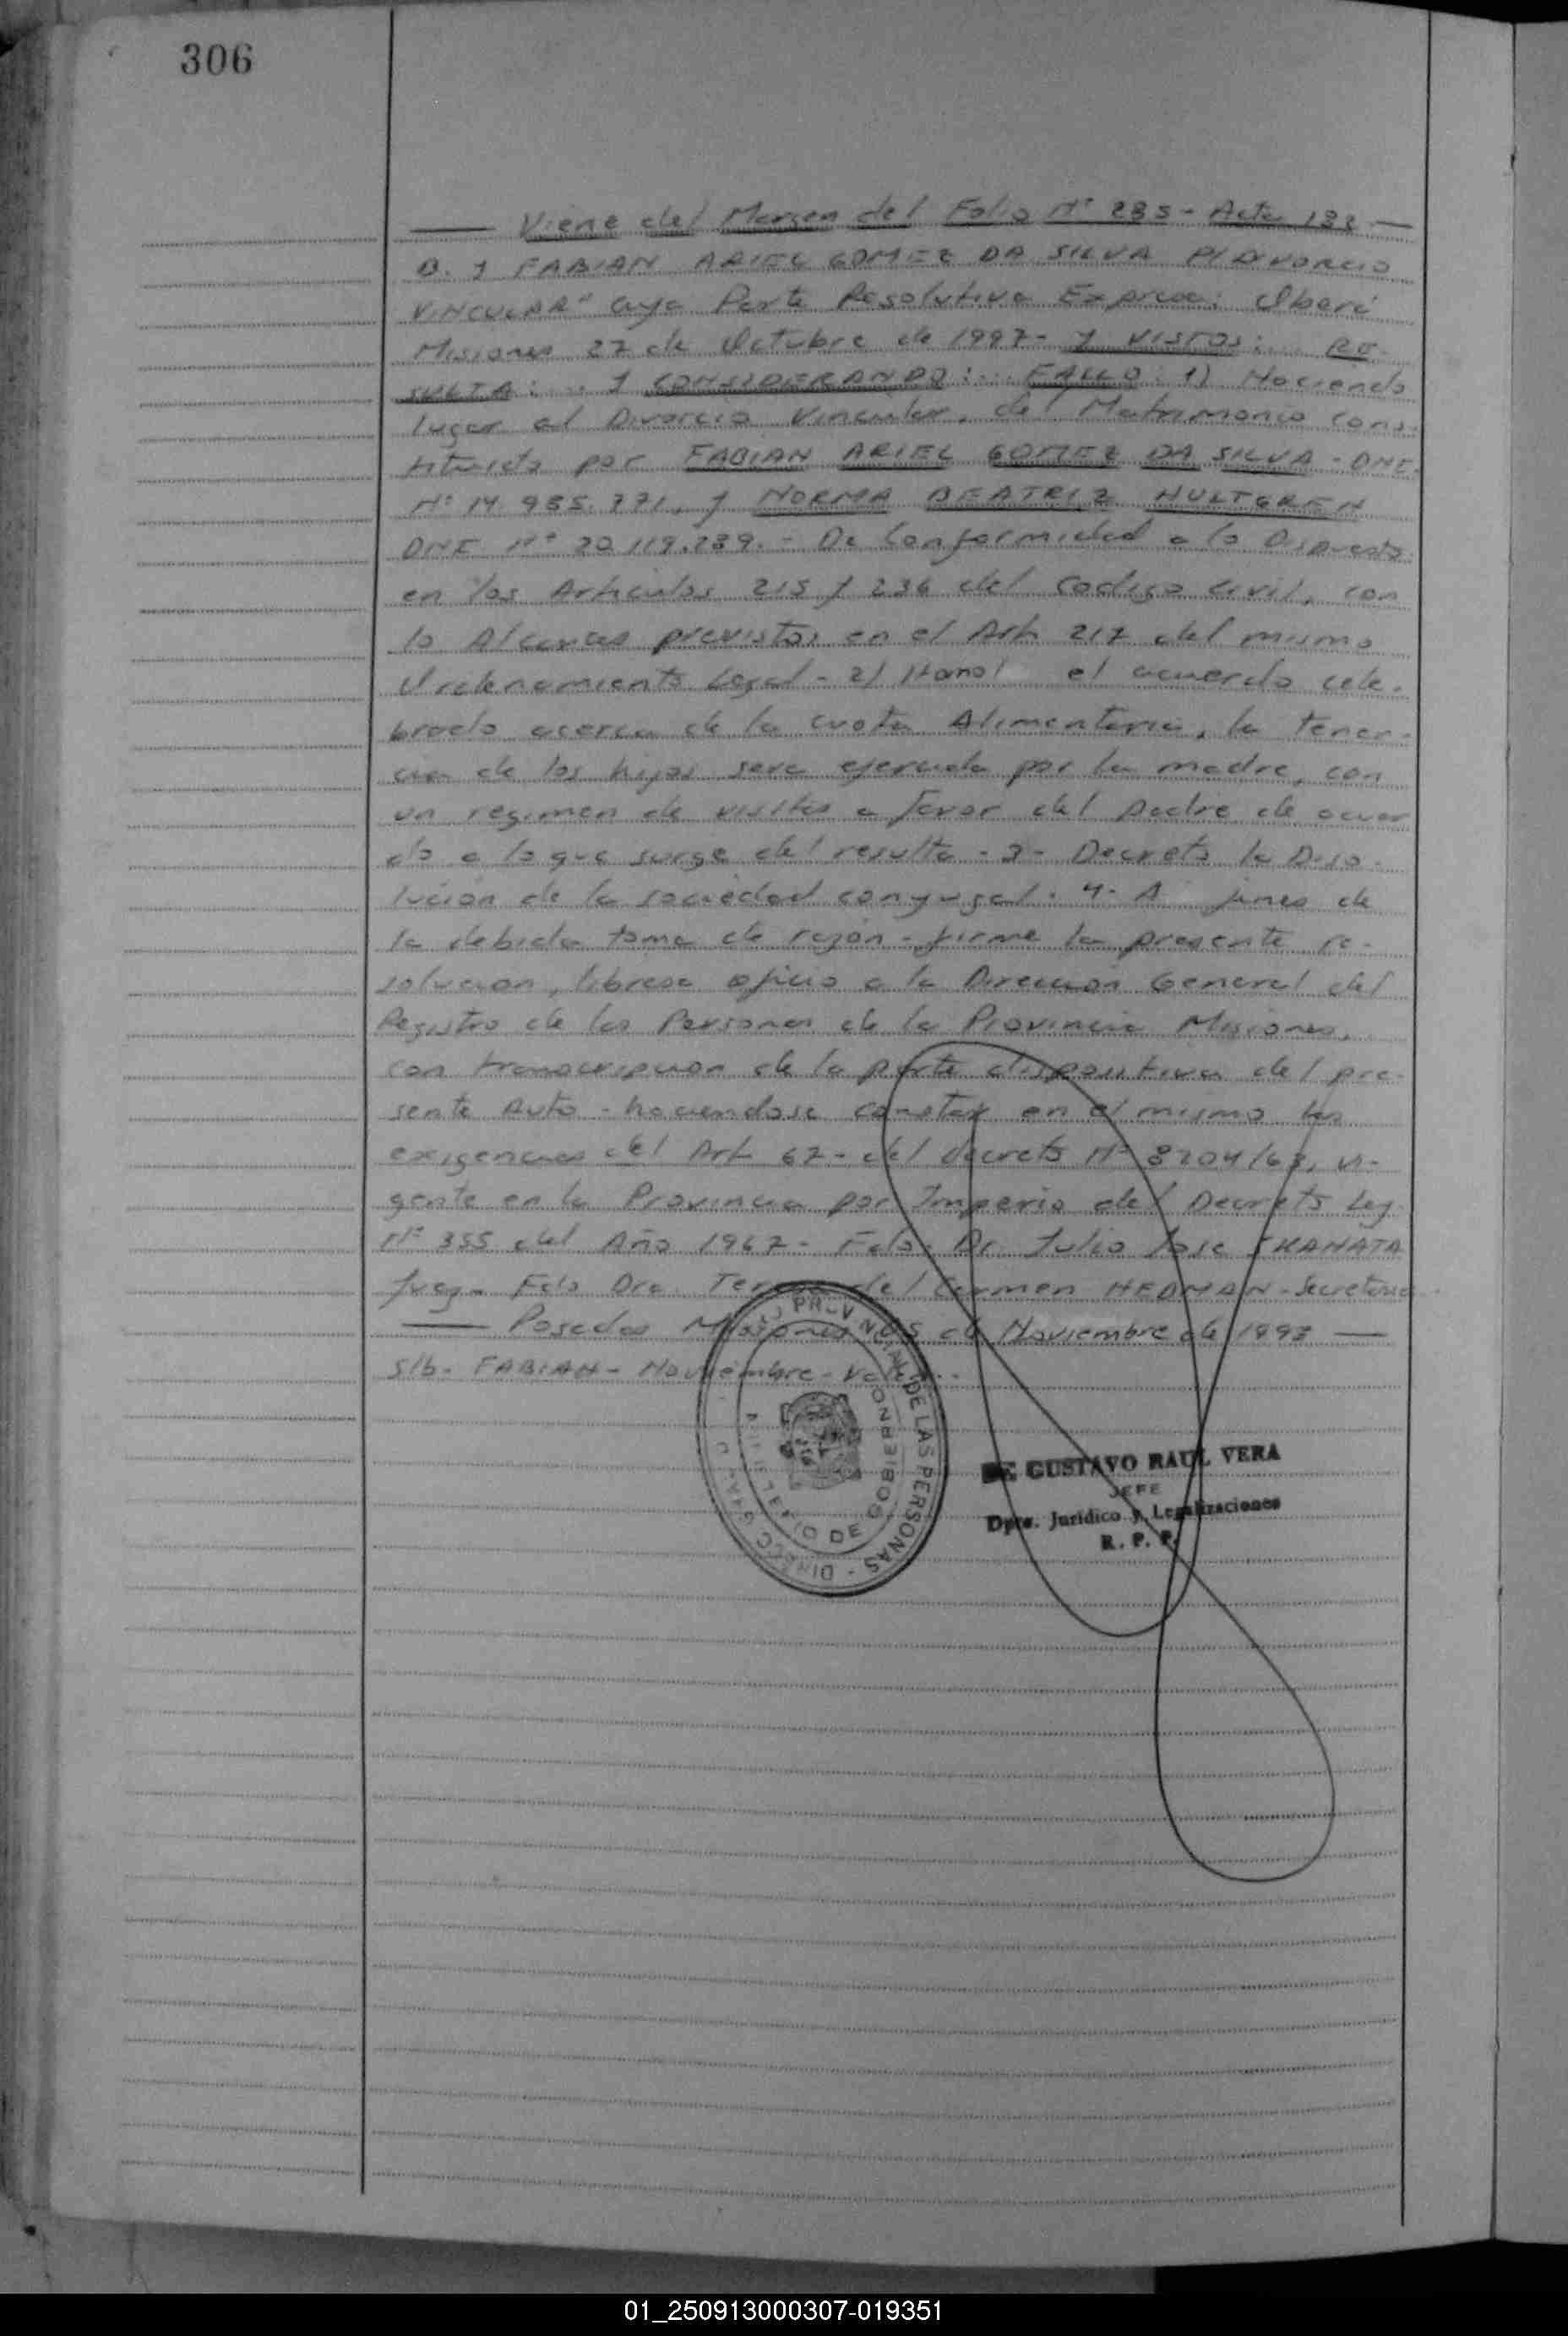 306
Viene del Margen del Folio Nº 285 - Acta 132
B. Y FABIAN ARIEL GOMEZ DA SILVA P/DIVORCIO
VINCULAR" cuya Parte Resolutiva Expresa: Oberá
Misiones 27 de Octubre de 1997- Y VISTOS: RE-
SULTA: ... Y CONSIDERANDO: ... FALLO: 1) Haciendo
lugar al Divorcio Vincular, del Matrimonio cons-
tituido por FABIAN ARIEL GOMEZ DA SILVA - DNI
Nº 14.985.771, y NORMA BEATRIZ HULTGREN
DNI Nº 20.119.239. - De Conformidad a lo Dispuesto
en los Articulos 215 y 236 del Codigo Civil, con
lo Alcances previstos en el Art. 217 del mismo
Ordenamiento Legal - 2) el acuerdo cele-
brado acerca de la cuota Alimentaria, la tenen-
cia de los hijos sera ejercida por la madre, con
un regimen de visitas a favor del padre de acuer
do a lo que surge del resulta - 3- Decreto la Diso-
lución de la sociedad conyugal. 4- A fines de
la debida toma de razón - firme la presente re-
solucion, librese oficio a la Dirección General del
Registro de las Personas de la Provincia Misiones,
con transcripcion de la parte dispositiva del pre-
sente Auto - haciendose constar en el mismo las
exigencias del Art 67- del decreto Nº 8204/63, vi-
gente en la Provincia por Imperio del Decreto Ley
Nº 355 del Año 1967- Fdo. Dr. Julio Jose SKANATA
Juez- Fdo Dra. Teresa del Carmen HEDMAN - Secretaria
Posadas Misiones de Noviembre de 1997
S/b- FABIAN - Noviembre - Vale...
PROVINCIAL DE LAS PERSONAS - DIRECC
MINISTERIO DE GOBIERNO
GUSTAVO RAUL VERA
JEFE
Dpto. Jurídico y Legalizaciones
R. P. P.
01_250913000307-019351